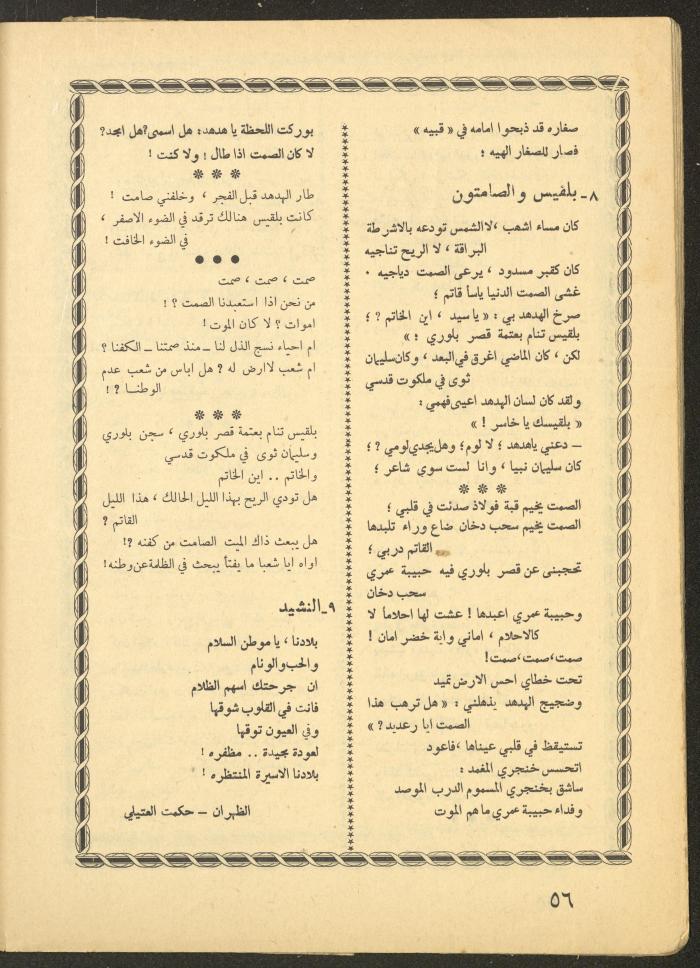 صغاره قد ذبحوا امامه في « قبيه »
فصار للصغار الهيه ؛
٨ـ بلقيس والصامتون
كان مساء اشهب ، لا الشمس تودعه بالاشرطة
البراقة ، لا الريح تناجيه
كان كقبر مسدود ، يرعى الصمت دياجيه ٠
غشى الصمت الدنيا يأسا قاتم ؛
صرخ الهدهد بي : « يا سيد ، اين الخاتم ? ؛
بلقيس تنام بعتمة قصر بلوري ؛ »
لكن ، كان الماضي اغرق في البعد ، وكان سليمان
ثوى في ملكوت قدسي
ولقد كان لسان الهدهد اعيى فهمي :
« بلقيسك يا خاسر ! »
ــ دعني ياهدهد ؛ لا لوم ؛ وهل يجدي لومي ? ؛
كان سليمان نبيا ، وانا لست سوي شاعر ؛
❊ ❊ ❊
الصمت يخيم قبة فولاذ صدئت في قلبي ؛
الصمت يخيم سحب دخان ضاع وراء تلبدها
القاتم دربي ؛
تحجبنى عن قصر بلوري فيه حبيبة عمري
سحب دخان
وحبيبة عمري اعبدها ! عشت لها احلاماً لا
كالاحلام ، اماني واية خضر امان !
صمت ، صمت ، صمت !
تحت خطاي احس الارض تميد
وضجيج الهدهد يذهلني : « هل ترهب هذا
الصمت ايا رعديد ? »
تستيقظ في قلبي عيناها ، فاعود
اتحسس خنجري المغمد :
ساشق بخنجري المسموم الدرب الموصد
وفداء حبيبة عمري ما هم الموت
بوركت اللحظة يا هدهد : هل اسمى ? هل امجد ?
لا كان الصمت اذا طال ! ولا كنت !
❊ ❊ ❊
طار الهدهد قبل الفجر ، وخلفني صامت !
كانت بلقيس هنالك ترقد في الضوء الاصفر ،
في الضوء الخافت !
● ● ●
صمت ، صمت ، صمت
من نحن اذا استعبدنا الصمت ? !
اموات ? لا كان الموت !
ام احياء نسج الذل لنا ــ منذ صمتنا ــ الكفنا ?
ام شعب لا ارض له ? هل اباس من شعب عدم
الوطنا ? !
❊ ❊ ❊
بلقيس تنام بعتمة قصر بلوري ، سجن بلوري
وسليمان ثوى في ملكوت قدسي
والخاتم .. اين الخاتم
هل تودي الريح بهذا الليل الحالك ، هذا الليل
القاتم ?
هل يبعث ذاك الميت الصامت من كفنه ?!
اواه ايا شعبا ما يفتأ يبحث في الظلمة عن وطنه !
٩ـ النشيد
بلادنا ، يا موطن السلام
والحب والوئام
ان جرحتك اسهم الظلام
فانت في القلوب شوقها
وفي العيون توقها
لعودة مجيدة .. مظفره !
بلادنا الاسيرة المنتظره !
الظهران ــ حكمت العتيلي
٥٦